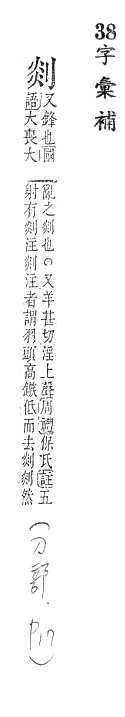 38字彙補
剡
又鋒也○國
語大喪大
亂之剡也○又羊甚切淫上聲周禮保氏註五
射有剡注剡注者謂羽頭高鏃低而去剡剡然
(刀部.P17)